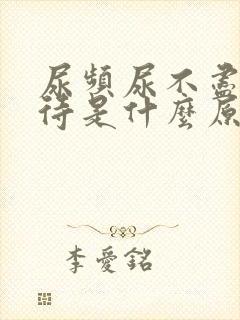 尿頻尿不盡
待是什麼原
李愛銘